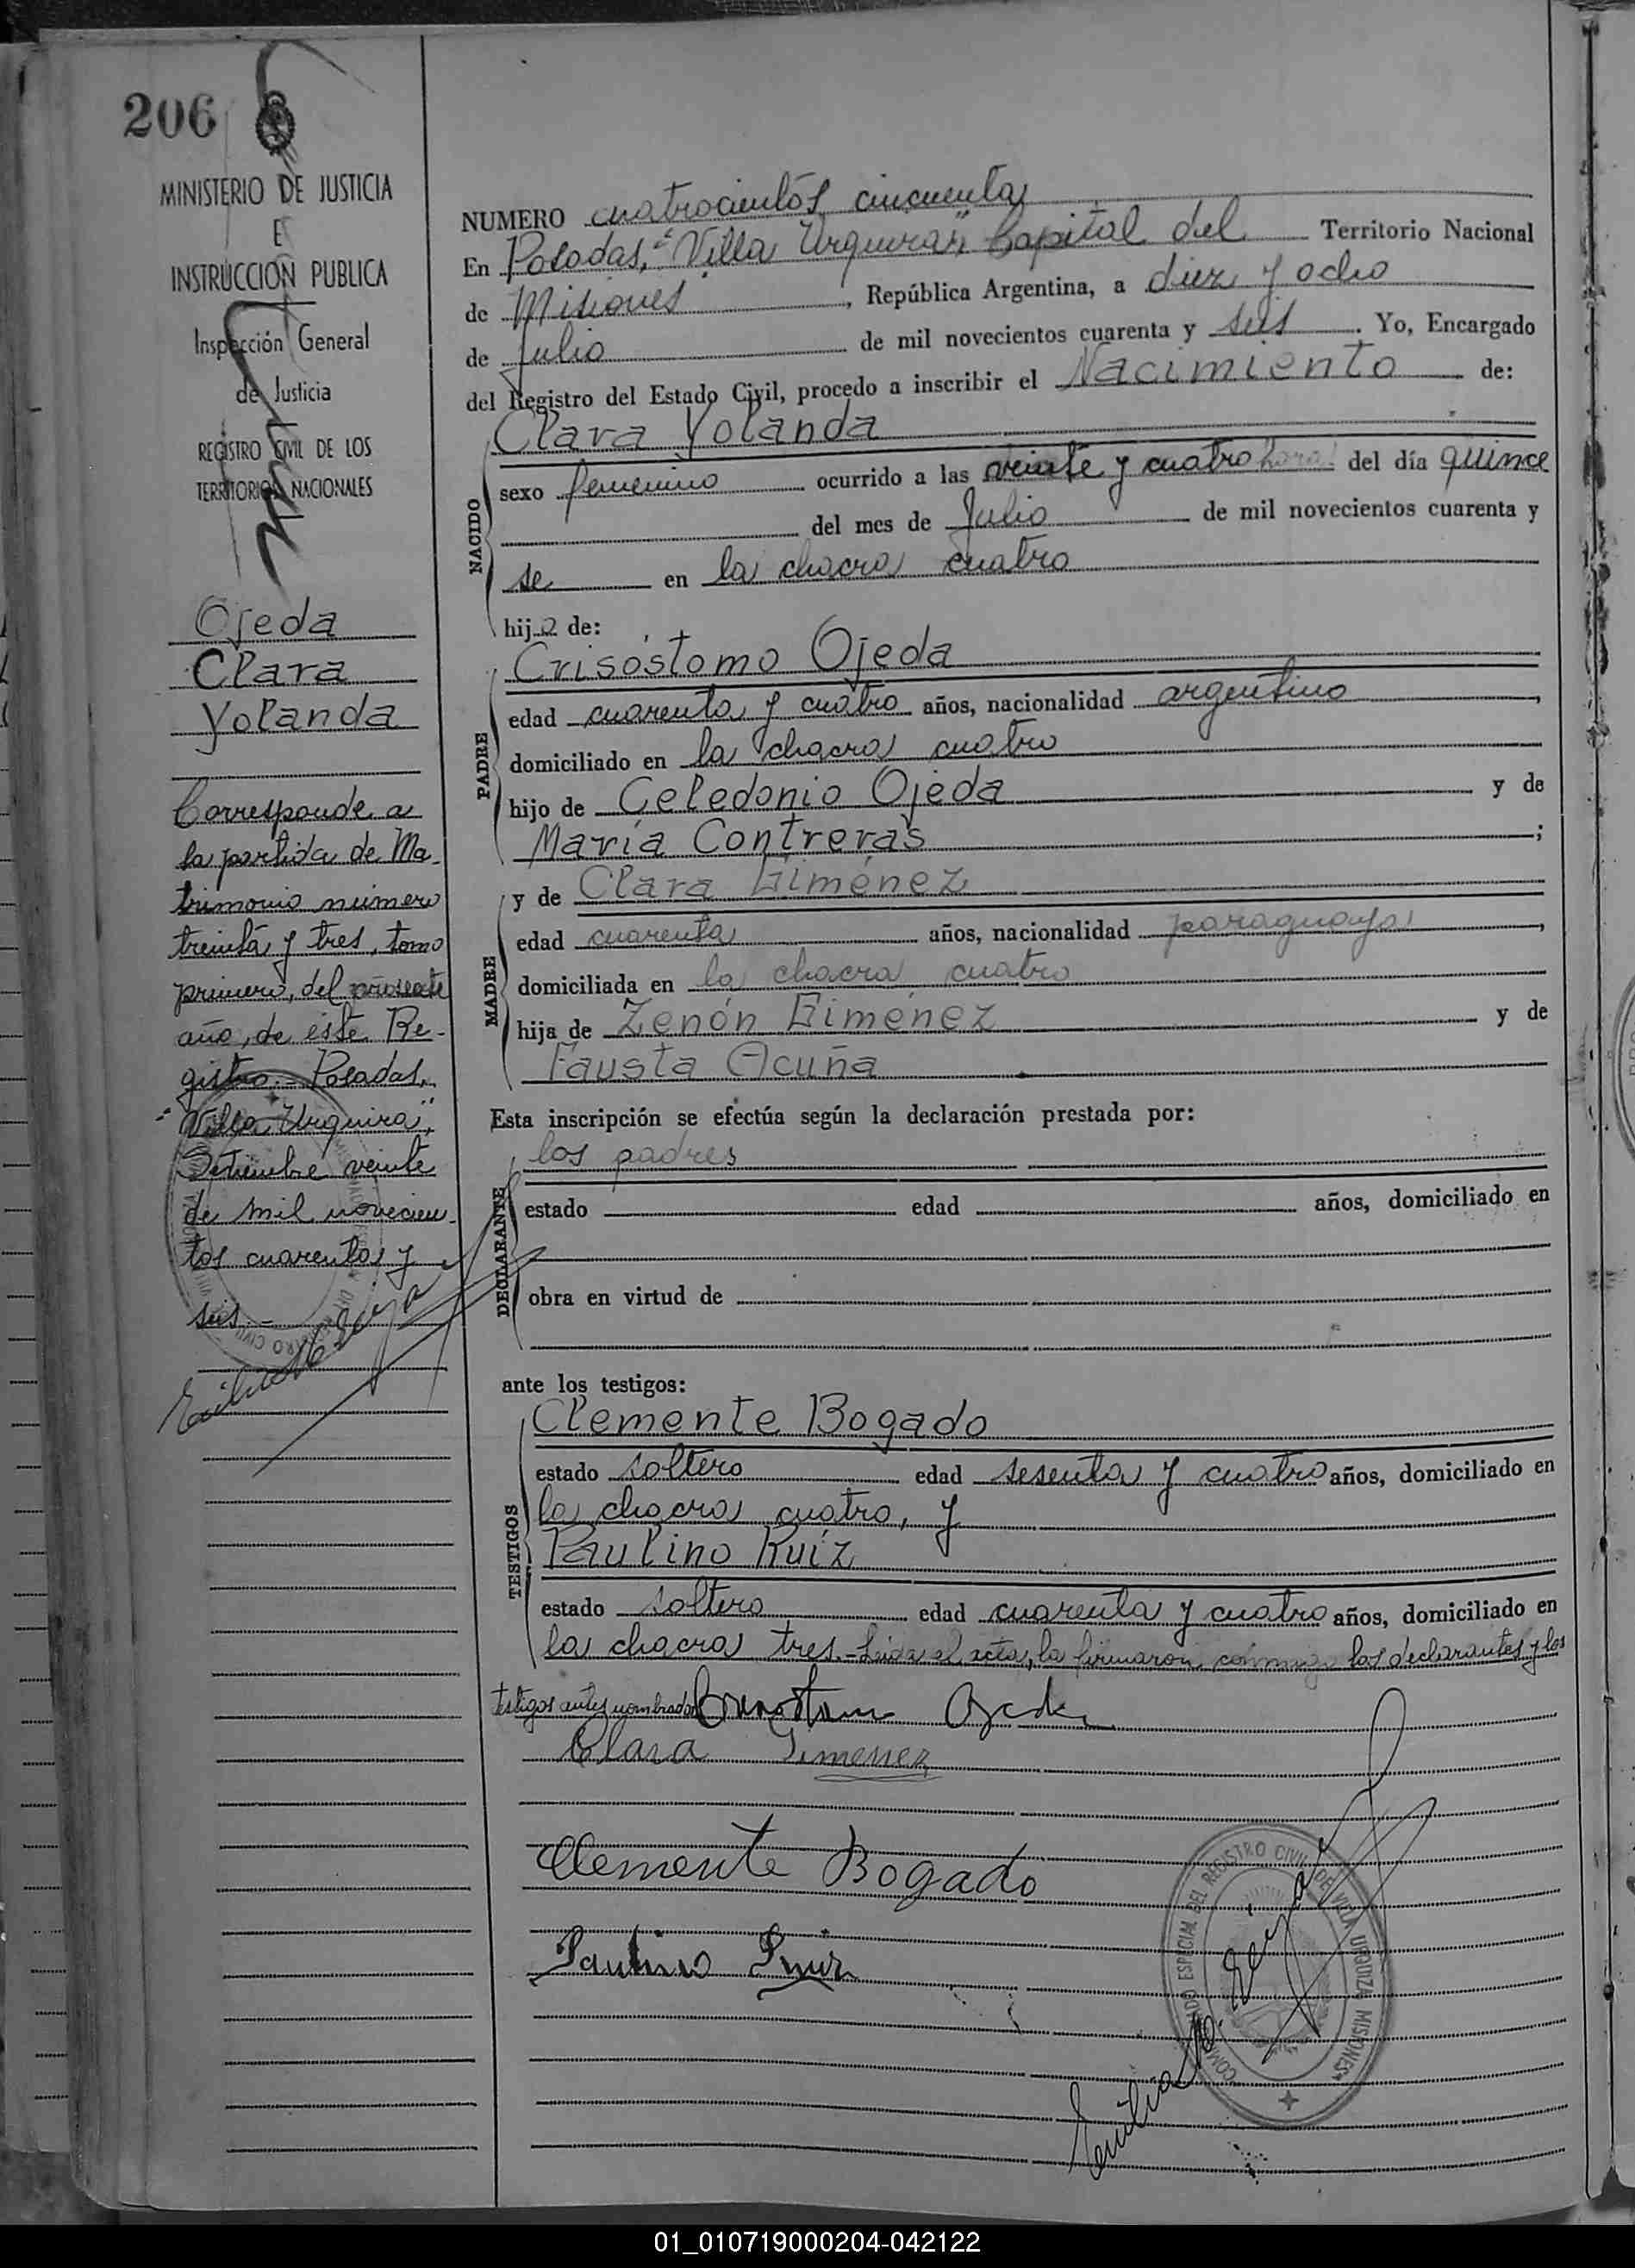 206
MINISTERIO DE JUSTICIA
E
INSTRUCCION PUBLICA
Inspección General
de Justicia
REGISTRO CIVIL DE LOS
TERRITORIOS NACIONALES
Ojeda
Clara
Yolanda
Corresponde a
la partida de Ma-
trimonio número
treinta y tres, tomo
primero, del presente
año, de éste Re-
gistro.- Posadas,
"Villa Urquiza",
Setiembre veinte
de mil novecien-
tos cuarenta y
seis.-
NUMERO cuatrocientos cincuenta
En Posadas, "Villa Urquiza", Capital del Territorio Nacional
de Misiones, República Argentina, a diez y ocho
de Julio de mil novecientos cuarenta y seis. Yo, Encargado
del Registro del Estado Civil, procedo a inscribir el Nacimiento de:
Clara Yolanda
NACIDO
sexo femenino ocurrido a las veinte y cuatro horas del día quince
del mes de Julio de mil novecientos cuarenta y
se en la chacra cuatro
hija de:
PADRE
Crisóstomo Ojeda
edad cuarenta y cuatro años, nacionalidad argentino,
domiciliado en la chacra cuatro
hijo de Celedonio Ojeda y de
María Contreras;
MADRE
y de Clara Giménez
edad cuarenta años, nacionalidad paraguaya,
domiciliada en la chacra cuatro
hija de Zenón Giménez y de
Fausta Acuña
Esta inscripción se efectúa según la declaración prestada por:
DECLARANTE
los padres
estado edad años, domiciliado en
obra en virtud de
ante los testigos:
TESTIGOS
Clemente Bogado
estado soltero edad sesenta y cuatro años, domiciliado en
la chacra cuatro, y
Paulino Ruíz
estado soltero edad cuarenta y cuatro años, domiciliado en
la chacra tres.- Leída el acta, la firmaron conmigo los declarantes y los
testigos antes nombrados Crisostomo Ojeda
Clara Gimenez
Clemente Bogado
Paulino Ruiz
ESPECIAL DEL REGISTRO CIVIL DE VILLA URQUIZA MISIONES
01_010719000204-042122